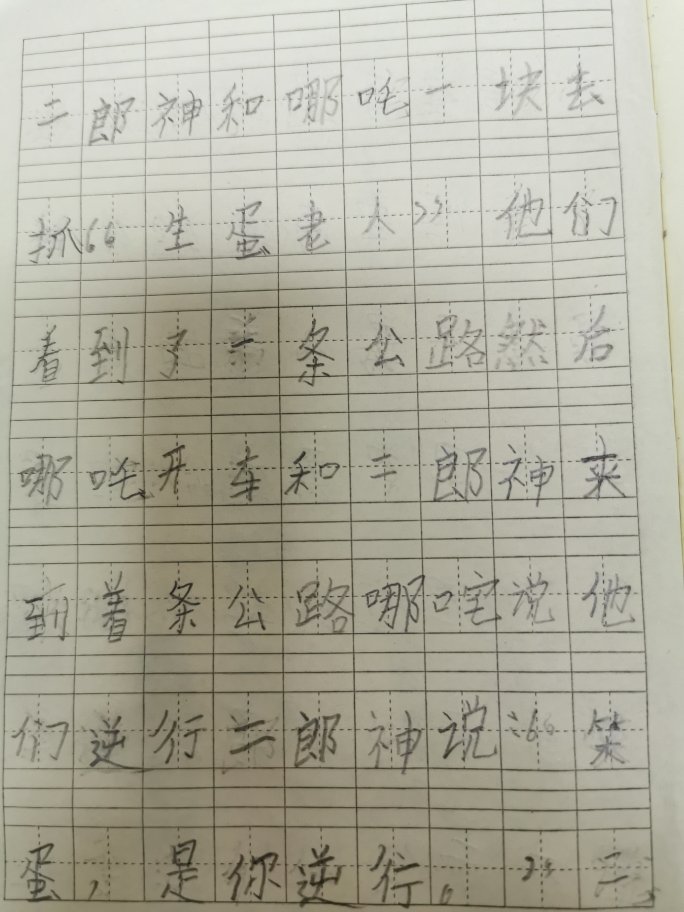 二郎神和哪吒一块去
抓“生蛋老人”他们
看到了一条公路然后
哪吒开车和二郎神来
到着条公路哪咤说他
们逆行二郎神说：“笨
蛋，是你逆行。”二